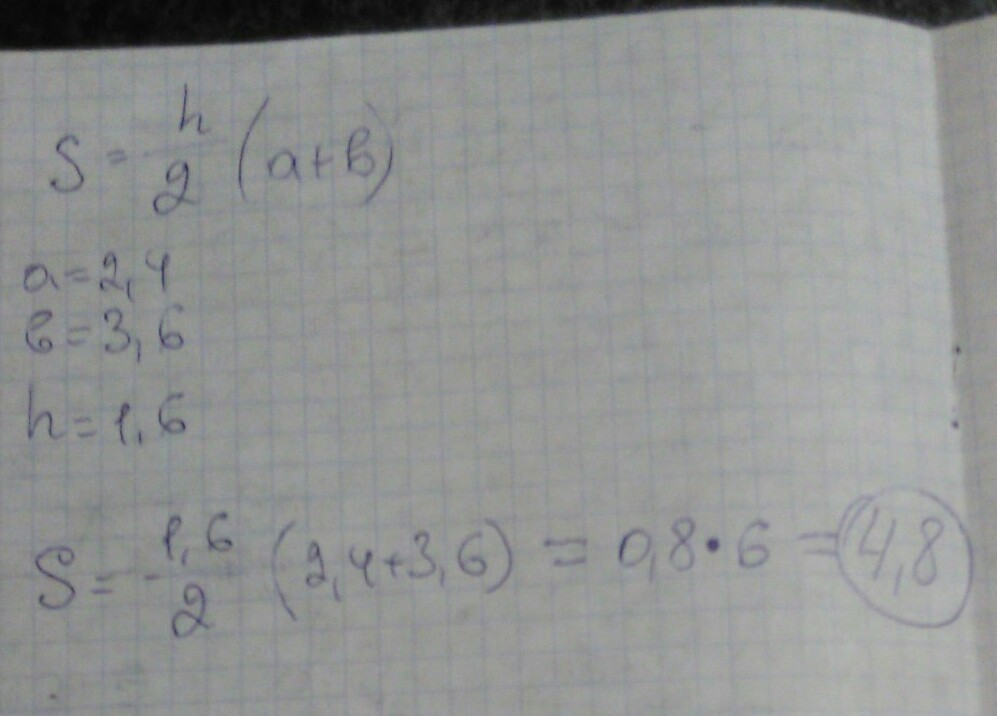 S = h/2 (a+b)
a=2,4
b=3,6
h=1,6
S = 1,6/2 (2,4+3,6) = 0,8•6 = 4,8